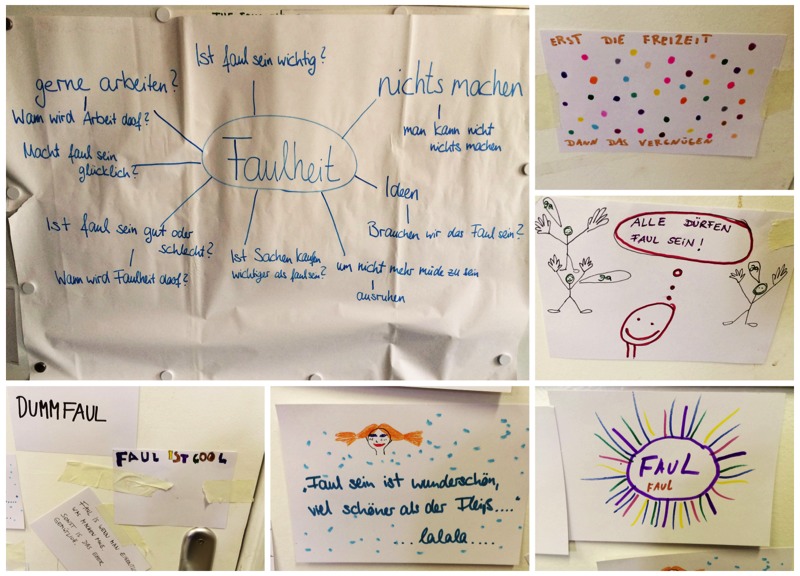 Ist faul sein wichtig?
gerne arbeiten?
Wann wird Arbeit doof?
nichts machen
man kann nicht
nichts machen
Macht faul sein
glücklich?
Faulheit
Ideen
Brauchen wir das Faul sein?
Ist faul sein gut oder
schlecht?
Wann wird Faulheit doof?
Ist Sachen kaufen
wichtiger als faul sein?
um nicht mehr müde zu sein
ausruhen
ERST DIE FREIZEIT
DANN DAS VERGNÜGEN
ALLE DÜRFEN
FAUL SEIN!
Ja
Ja
Ja
DUMMFAUL
FAUL IST COOL
FAUL IS WENN MAN
SONST IS DAS
„Faul sein ist wunderschön,
viel schöner als der Fleiß...."
... lalala....
FAUL
FAUL